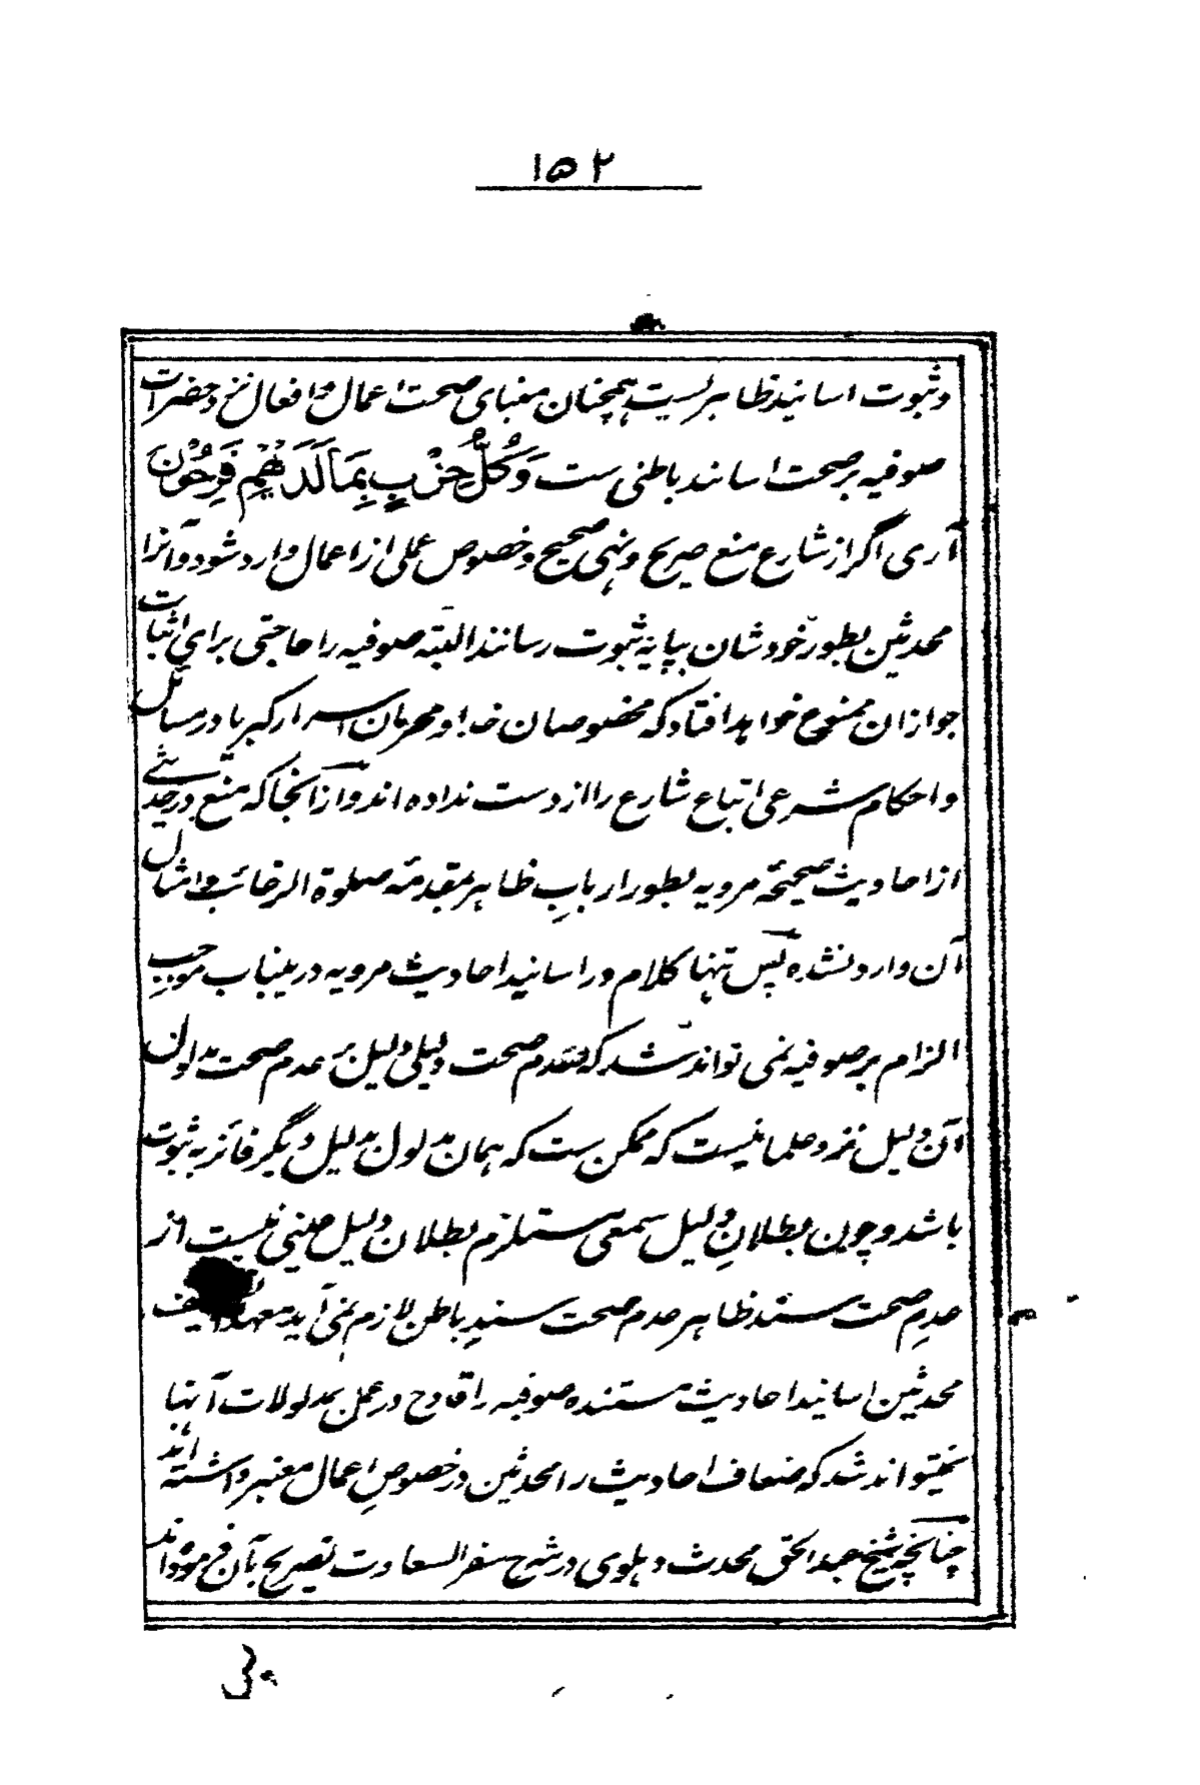 ۱۵۲
وثبوت اسانید ظاهریست همچنان مبنای صحت اعمال و افعال نزد حضرات
صوفیه بر صحت اسانید باطنی ست وَكُلُّ حِزْبٍ بِمَا لَدَيْهِمْ فَرِحُوْنَ
آری اگر از شارع منع صریح و نهی صحیح و خصوص عملی از اعمال وارد شود و آنرا
محدثین بطور خودشان بپایهٔ ثبوت رسانند البته صوفیه را حاجتی برای اثبات
جواز آن ممنوع خواهد افتاد که مخصوصان خدا و محرمان اسرار کبریا در مسائل
و احکام شرعی اتباع شارع را از دست نداده اند و از آنجا که منع در حدیثے
از احادیث صحیحهٔ مرویه بطور ارباب ظاهر بمقدمهٔ صلوة الرغائب و امثال
آن وارد نشده پس تنها کلام در اسانید احادیث مرویه درینباب موجب
الزام بر صوفیه نمی تواند شد که عدم صحت دلیلی دلیل بر عدم صحت مدلول
آن دلیل نزد علما نیست که ممکن ست که همان مدلول بدلیل دیگر فائز به ثبوت
باشد و چون بطلان دلیل سمعی مستلزم بطلان دلیل عینی نیست از
عدم صحت سند ظاهر عدم صحت سند باطن لازم نمی آید معهذا
محدثین اسانید احادیث مستنده صوفیه را قادح در عمل بمدلولات آنها
نمیتواند شد که ضعاف احادیث را محدثین در خصوص اعمال معتبر داشته اند
چنانچه شیخ عبد الحق محدث دهلوی در شرح سفر السعادت تصریح بآن فرموده اند